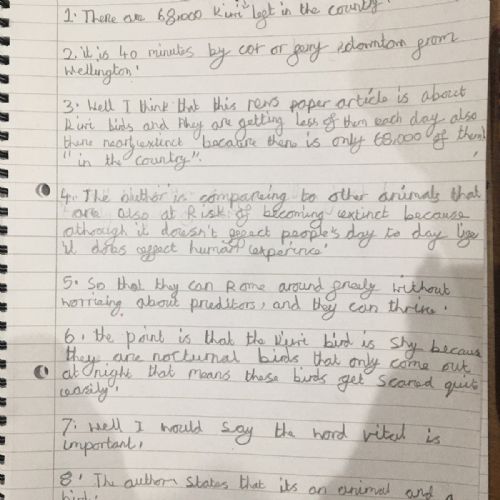 1. There are 68,000 Kiwi left in the country.
2. it is 40 minutes by car or ferry downtown from
Wellington.
3. Well I think that this news paper article is about
Kiwi birds and they are getting less of them each day also
there nearly extinct because there is only 68,000 of them
"in the country".
4. The author is compareing to other animals that
are also at Risk of becoming extinct because
although it doesn't affect people's day to day life
it does affect human experience.
5. So that they can Rome around freely without
worrieing about preditors, and they can thrive.
6. the point is that the Kiwi bird is shy because
they are nocturnal birds that only come out
at night that means these birds get scared quit
easily.
7. Well I would say the word vital is
important.
8. The author states that its an animal and a
bird.